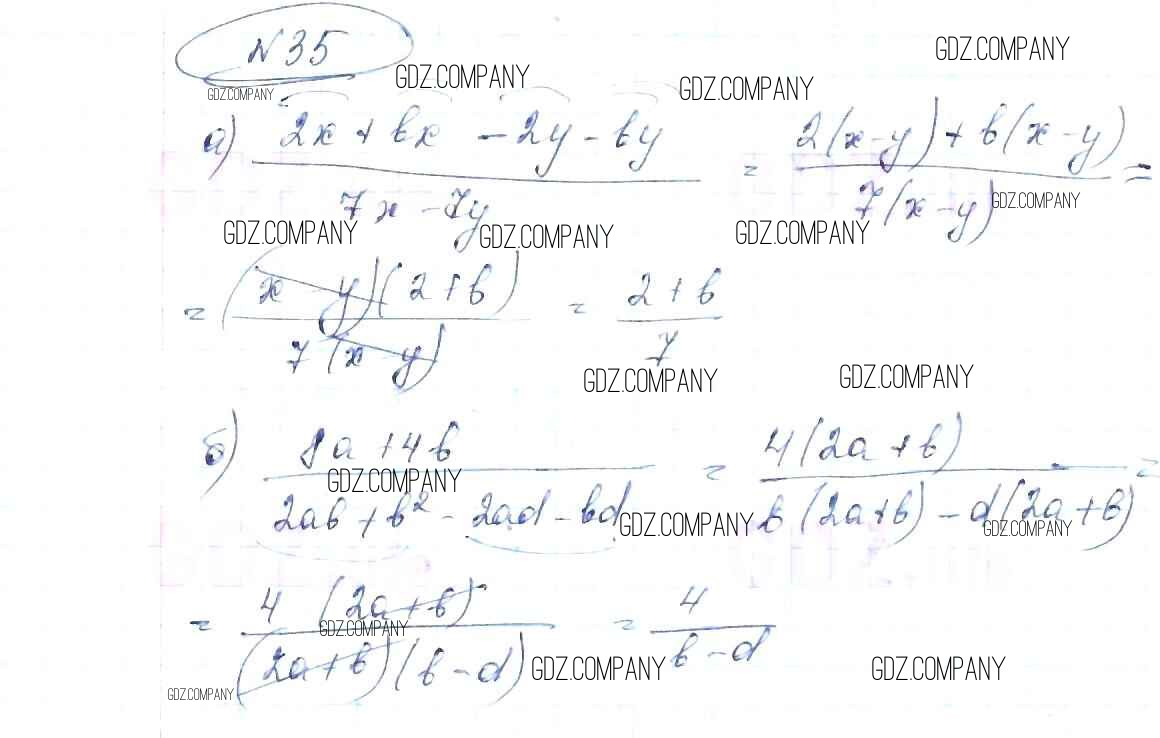 №35
GDZ.COMPANY
GDZ.COMPANY GDZ.COMPANY GDZ.COMPANY
а) (2x + bx - 2y - by)/(7x - 7y) = (2(x-y) + b(x-y))/(7(x-y)) =
GDZ.COMPANY
GDZ.COMPANY GDZ.COMPANY GDZ.COMPANY
= ((x-y)(2+b))/(7(x-y)) = (2+b)/7
GDZ.COMPANY GDZ.COMPANY
б) (8a + 4b)/(2ab + b² - 2ad - bd) = (4(2a+b))/(b(2a+b) - d(2a+b)) =
GDZ.COMPANY
GDZ.COMPANY GDZ.COMPANY
= (4(2a+b))/((2a+b)(b-d)) = 4/(b-d)
GDZ.COMPANY
GDZ.COMPANY GDZ.COMPANY GDZ.COMPANY